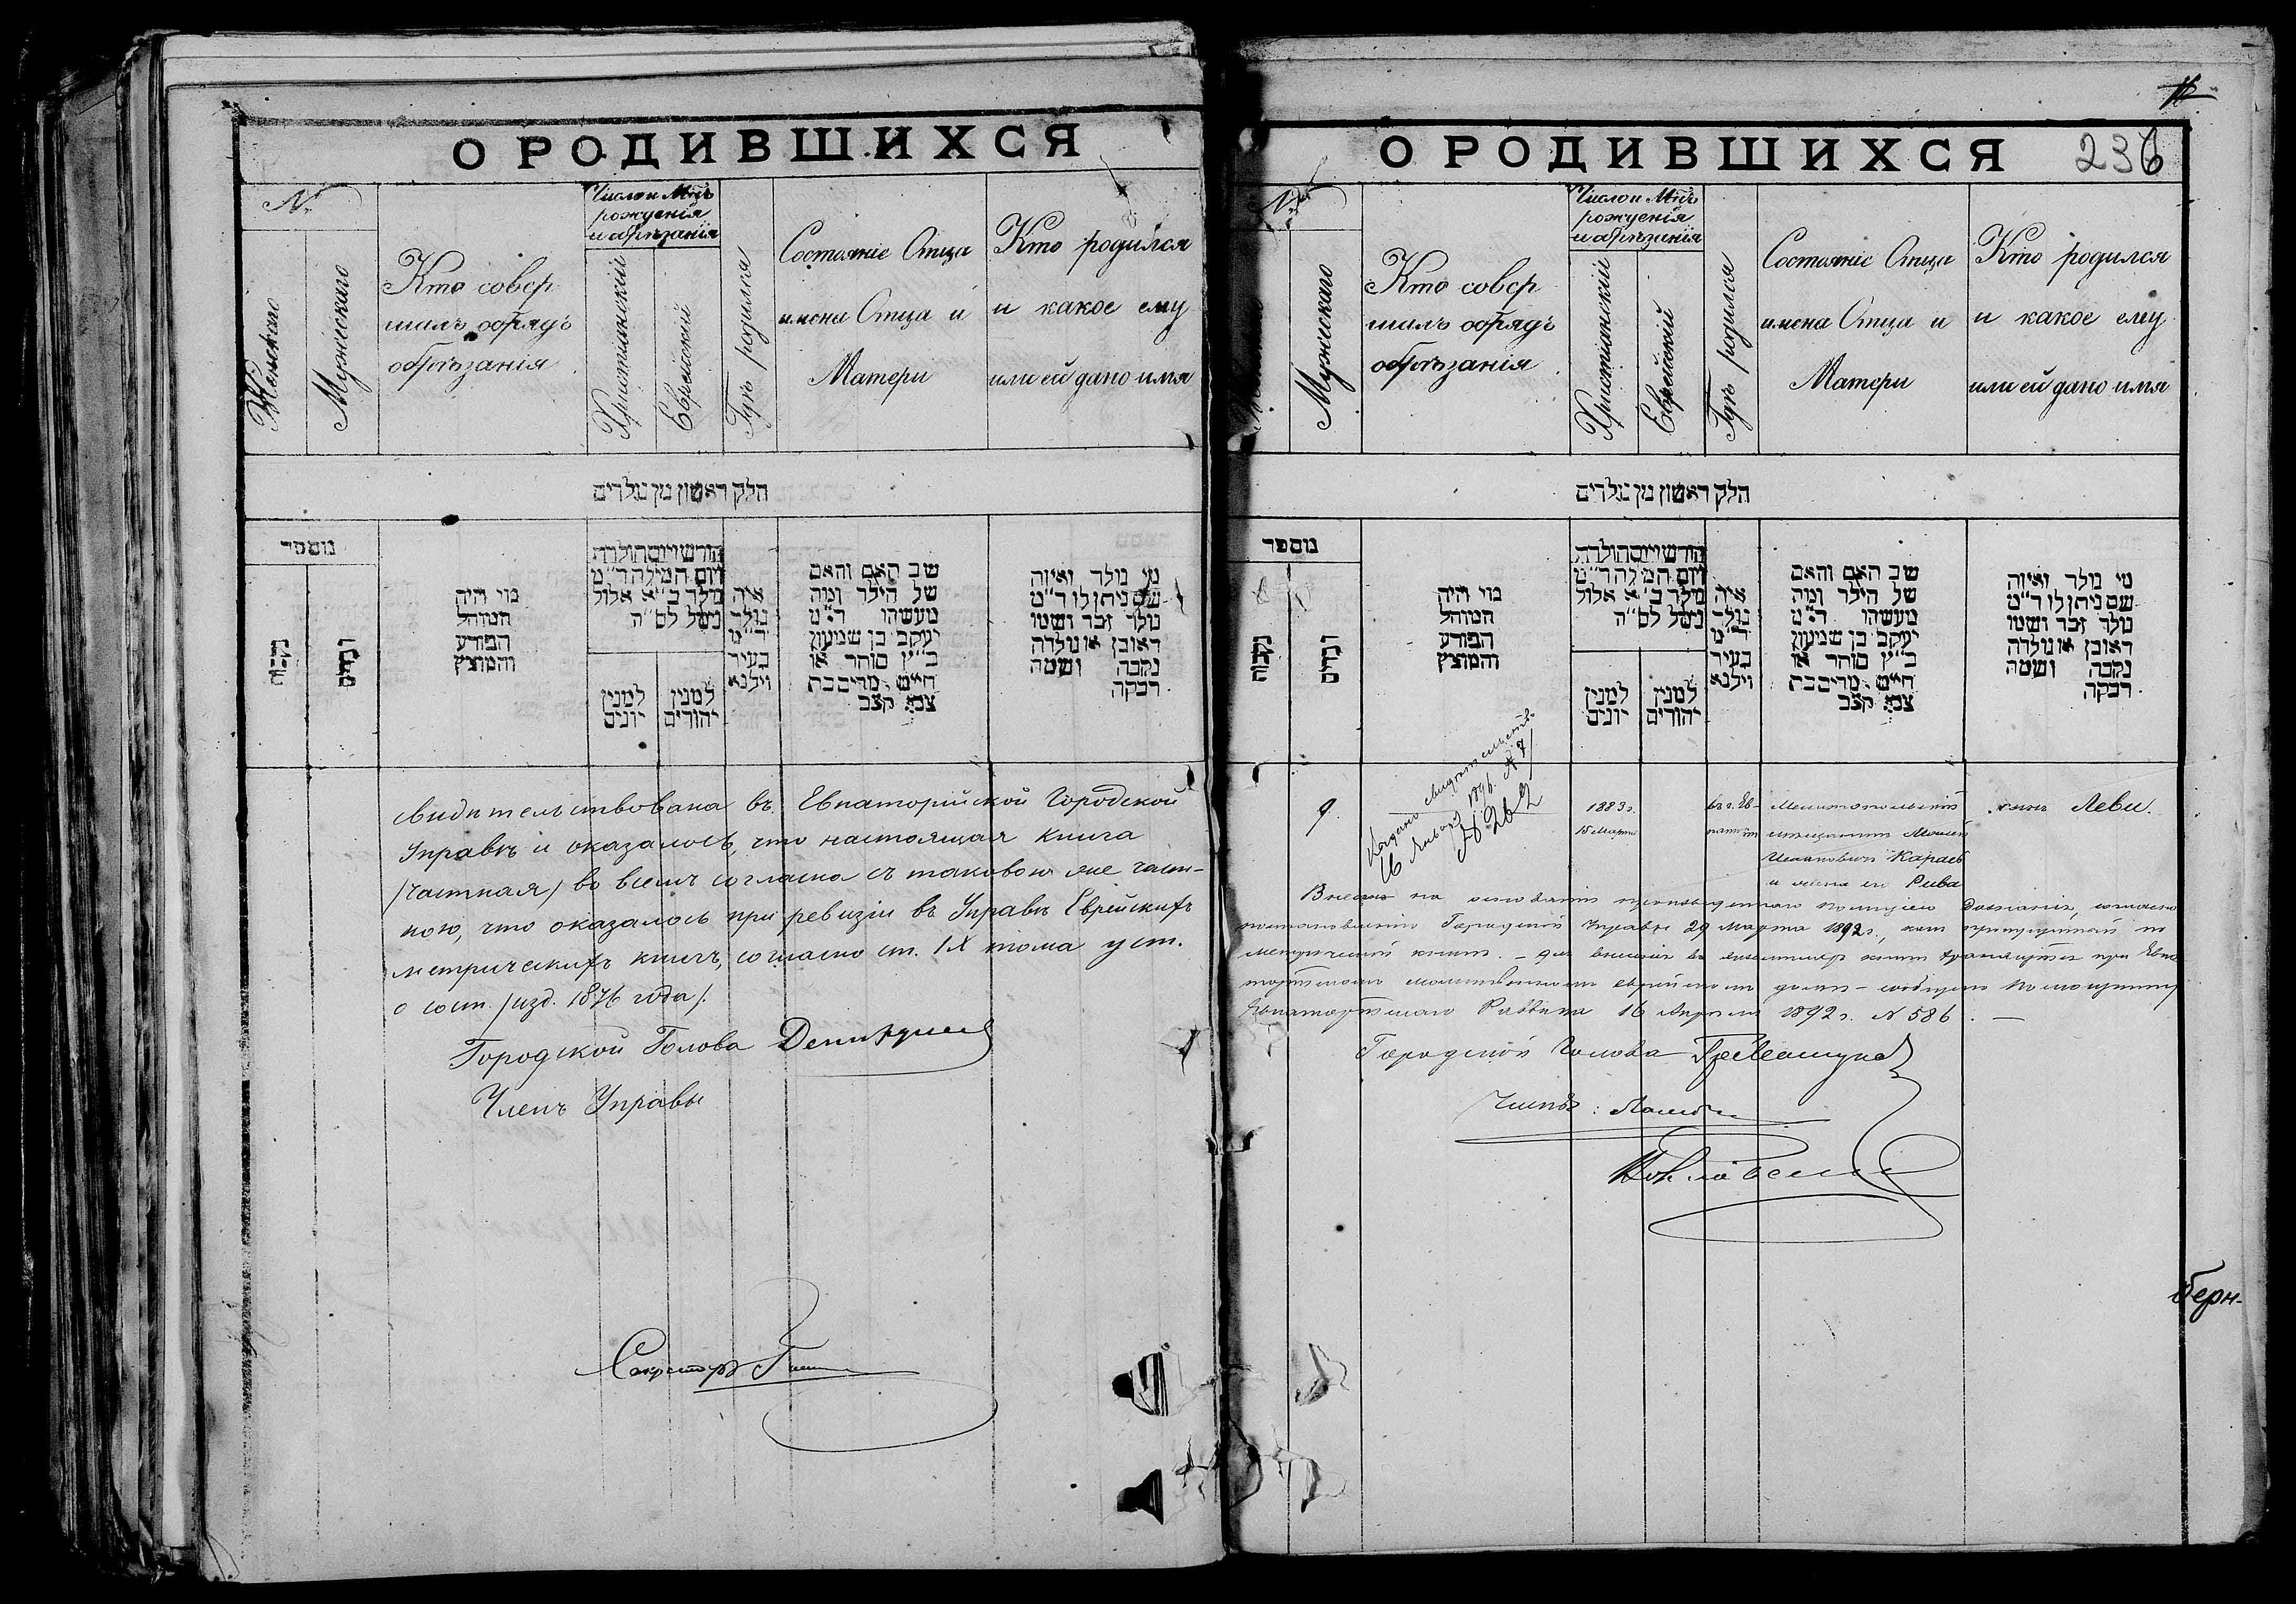 О РОДИВШИХСЯ
№
Женскаго
Мужескаго
Кто совер
шалъ обрядъ
обрѣзанія
Число и Мѣц
рожденія
и обрѣзанія
Христіанскій
Еврейскій
Гдѣ родился
Состояніе Отца
имена Отца и
Матери
Кто родился
и какое ему
или ей дано имя
חלק ראשון מן נולדים
מספר
נקבות
זכרים
מי היה
המוהל
הפורע
והמוצץ
חודש ויום הולדת
ויום המילה ד״מ
נולד ב״א אלול
נמול לס״ה
למנין
יונים
למנין
יהודים
איה
נולד
ד״מ
בעיר
וילנא
שם האב והאם
של הילד ומה
מעשהו ד״מ
יעקב בן שמעון
כ״ץ סוחר או
חי״ט מרים בת
צבי קצב
מי נולד ואיזה
שם ניתן לו ד״מ
נולד זכר ושמו
ראובן או נולדה
נקבה ושמה
רבקה
Свидѣтельствована въ Евпаторійской Городской
Управѣ и оказалось, что настоящая книга
/частная/ во всемъ согласна съ таковою же част-
ною, что оказалось при ревизіи въ Управѣ Еврейскихъ
метрическихъ книгъ, согласно ст. IX тома уст.
о сост. /изд. 1876 года/.
Городской Голова
Членъ Управы
Секретарь
О РОДИВШИХСЯ 236
№
Мужескаго
Кто совер
шалъ обрядъ
обрѣзанія
Число и Мѣц
рожденія
и обрѣзанія
Христіанскій
Еврейскій
Гдѣ родился
Состояніе Отца
имена Отца и
Матери
Кто родился
и какое ему
или ей дано имя
חלק ראשון מן נולדים
מספר
נקבות
זכרים
מי היה
המוהל
הפורע
והמוצץ
חודש ויום הולדת
ויום המילה ד״מ
נולד ב״א אלול
נמול לס״ה
למנין
יונים
למנין
יהודים
איה
נולד
ד״מ
בעיר
וילנא
שם האב והאם
של הילד ומה
מעשהו ד״מ
יעקב בן שמעון
כ״ץ סוחר או
חי״ט מרים בת
צבי קצב
מי נולד ואיזה
שם ניתן לו ד״מ
נולד זכר ושמו
ראובן או נולדה
נקבה ושמה
רבקה
9.
Выдано свидѣтельство
16 Января 1896
№ 262
1883 г.
15 Марта
въ г. Ев-
паторіи
Мелитопольскій
мѣщанинъ
Караевъ
и жена его Рива
сынъ Леви.
Внесенъ на основаніи произведеннаго полиціею дознанія, согласно
постановленію Городской Управы 29 Марта 1892 г.,
метрической книги. – для внесенія въ экземпляръ книги хранящійся при Евпа
торійскомъ молитвенномъ еврейскомъ домѣ – сообщено помощнику
Евпаторійскаго Раввина 16 Апрѣля 1892 г. № 586. —
Городской Голова
Членъ: